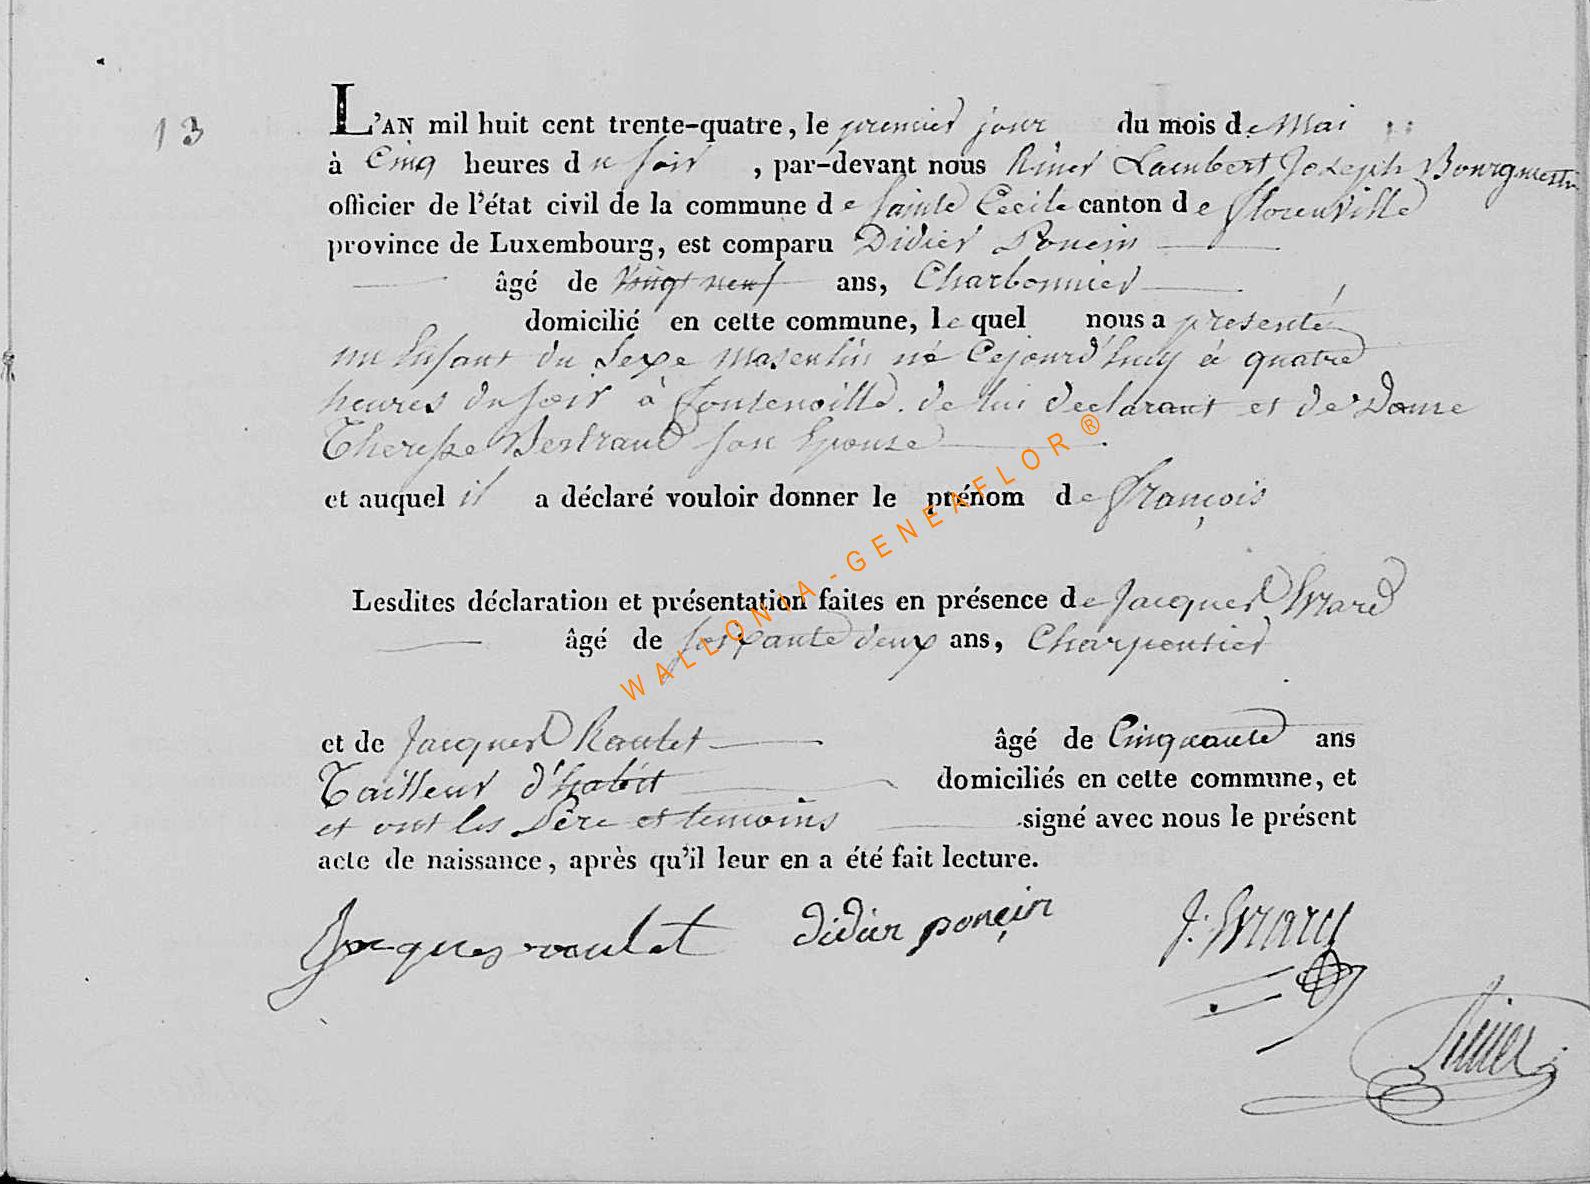 13
L'AN mil huit cent trente-quatre, le premier jour du mois de Mai
à Cinq heures du soir, par-devant nous Riner Lambert Joseph Bourgmestre
officier de l'état civil de la commune de Sainte Cecile canton de florenville
province de Luxembourg, est comparu Didier Poncin
âgé de vingt neuf ans, Charbonnier
domicilié en cette commune, le quel nous a presenté
un Enfant du Sexe Masculin né Cejourd'huy à quatre
heures du soir à fontenoille. de lui declarant et de Dame
Theresse Bertrand son Epouse
et auquel il a déclaré vouloir donner le prénom de françois
Lesdites déclaration et présentation faites en présence de Jacques Evrard
âgé de soixante deux ans, Charpentier
et de Jacques Raulet âgé de Cinquante ans
Tailleur d'habit domiciliés en cette commune, et
et ont les Père et temoins signé avec nous le présent
acte de naissance, après qu'il leur en a été fait lecture.
Jacques raulet didier ponçin J: Evrard
Riner
WALLONIA-GENEAFLOR®